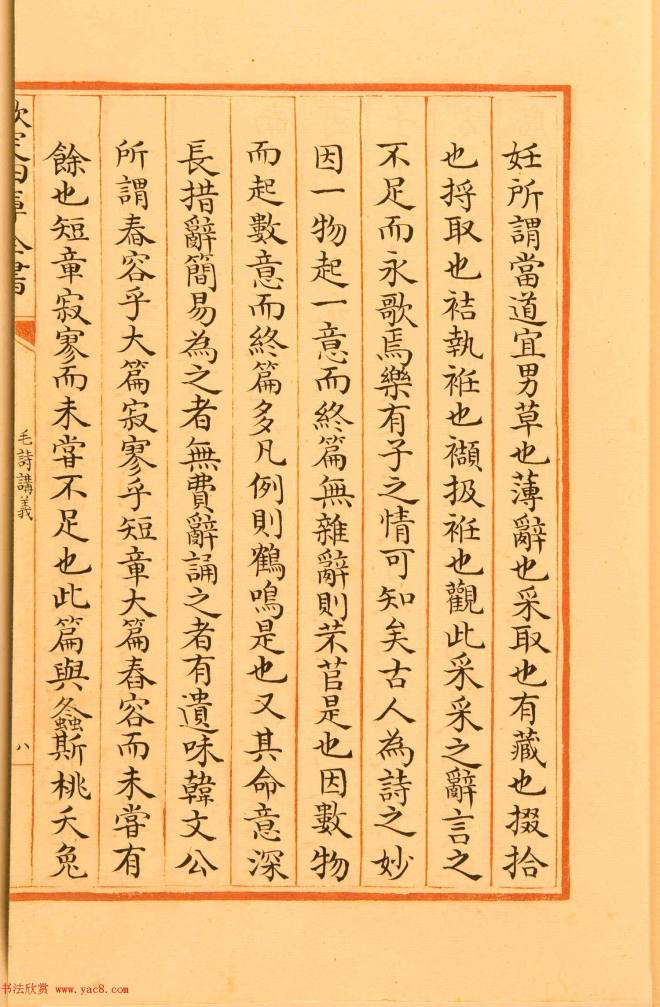 妊所謂當道宜男草也薄辭也采取也有藏也掇拾
也捋取也袺執袵也襭扱袵也觀此采采之辭言之
不足而永歌焉樂有子之情可知矣古人為詩之妙
因一物起一意而終篇無雜辭則芣苢是也因數物
而起數意而終篇多凡例則鶴鳴是也又其命意深
長措辭簡易為之者無費辭誦之者有遺味韓文公
所謂舂容乎大篇寂寥乎短章大篇舂容而未嘗有
餘也短章寂寥而未甞不足也此篇與螽斯桃夭兔
欽定四庫全書
毛詩講義
八
书法欣赏 www.yac8.com